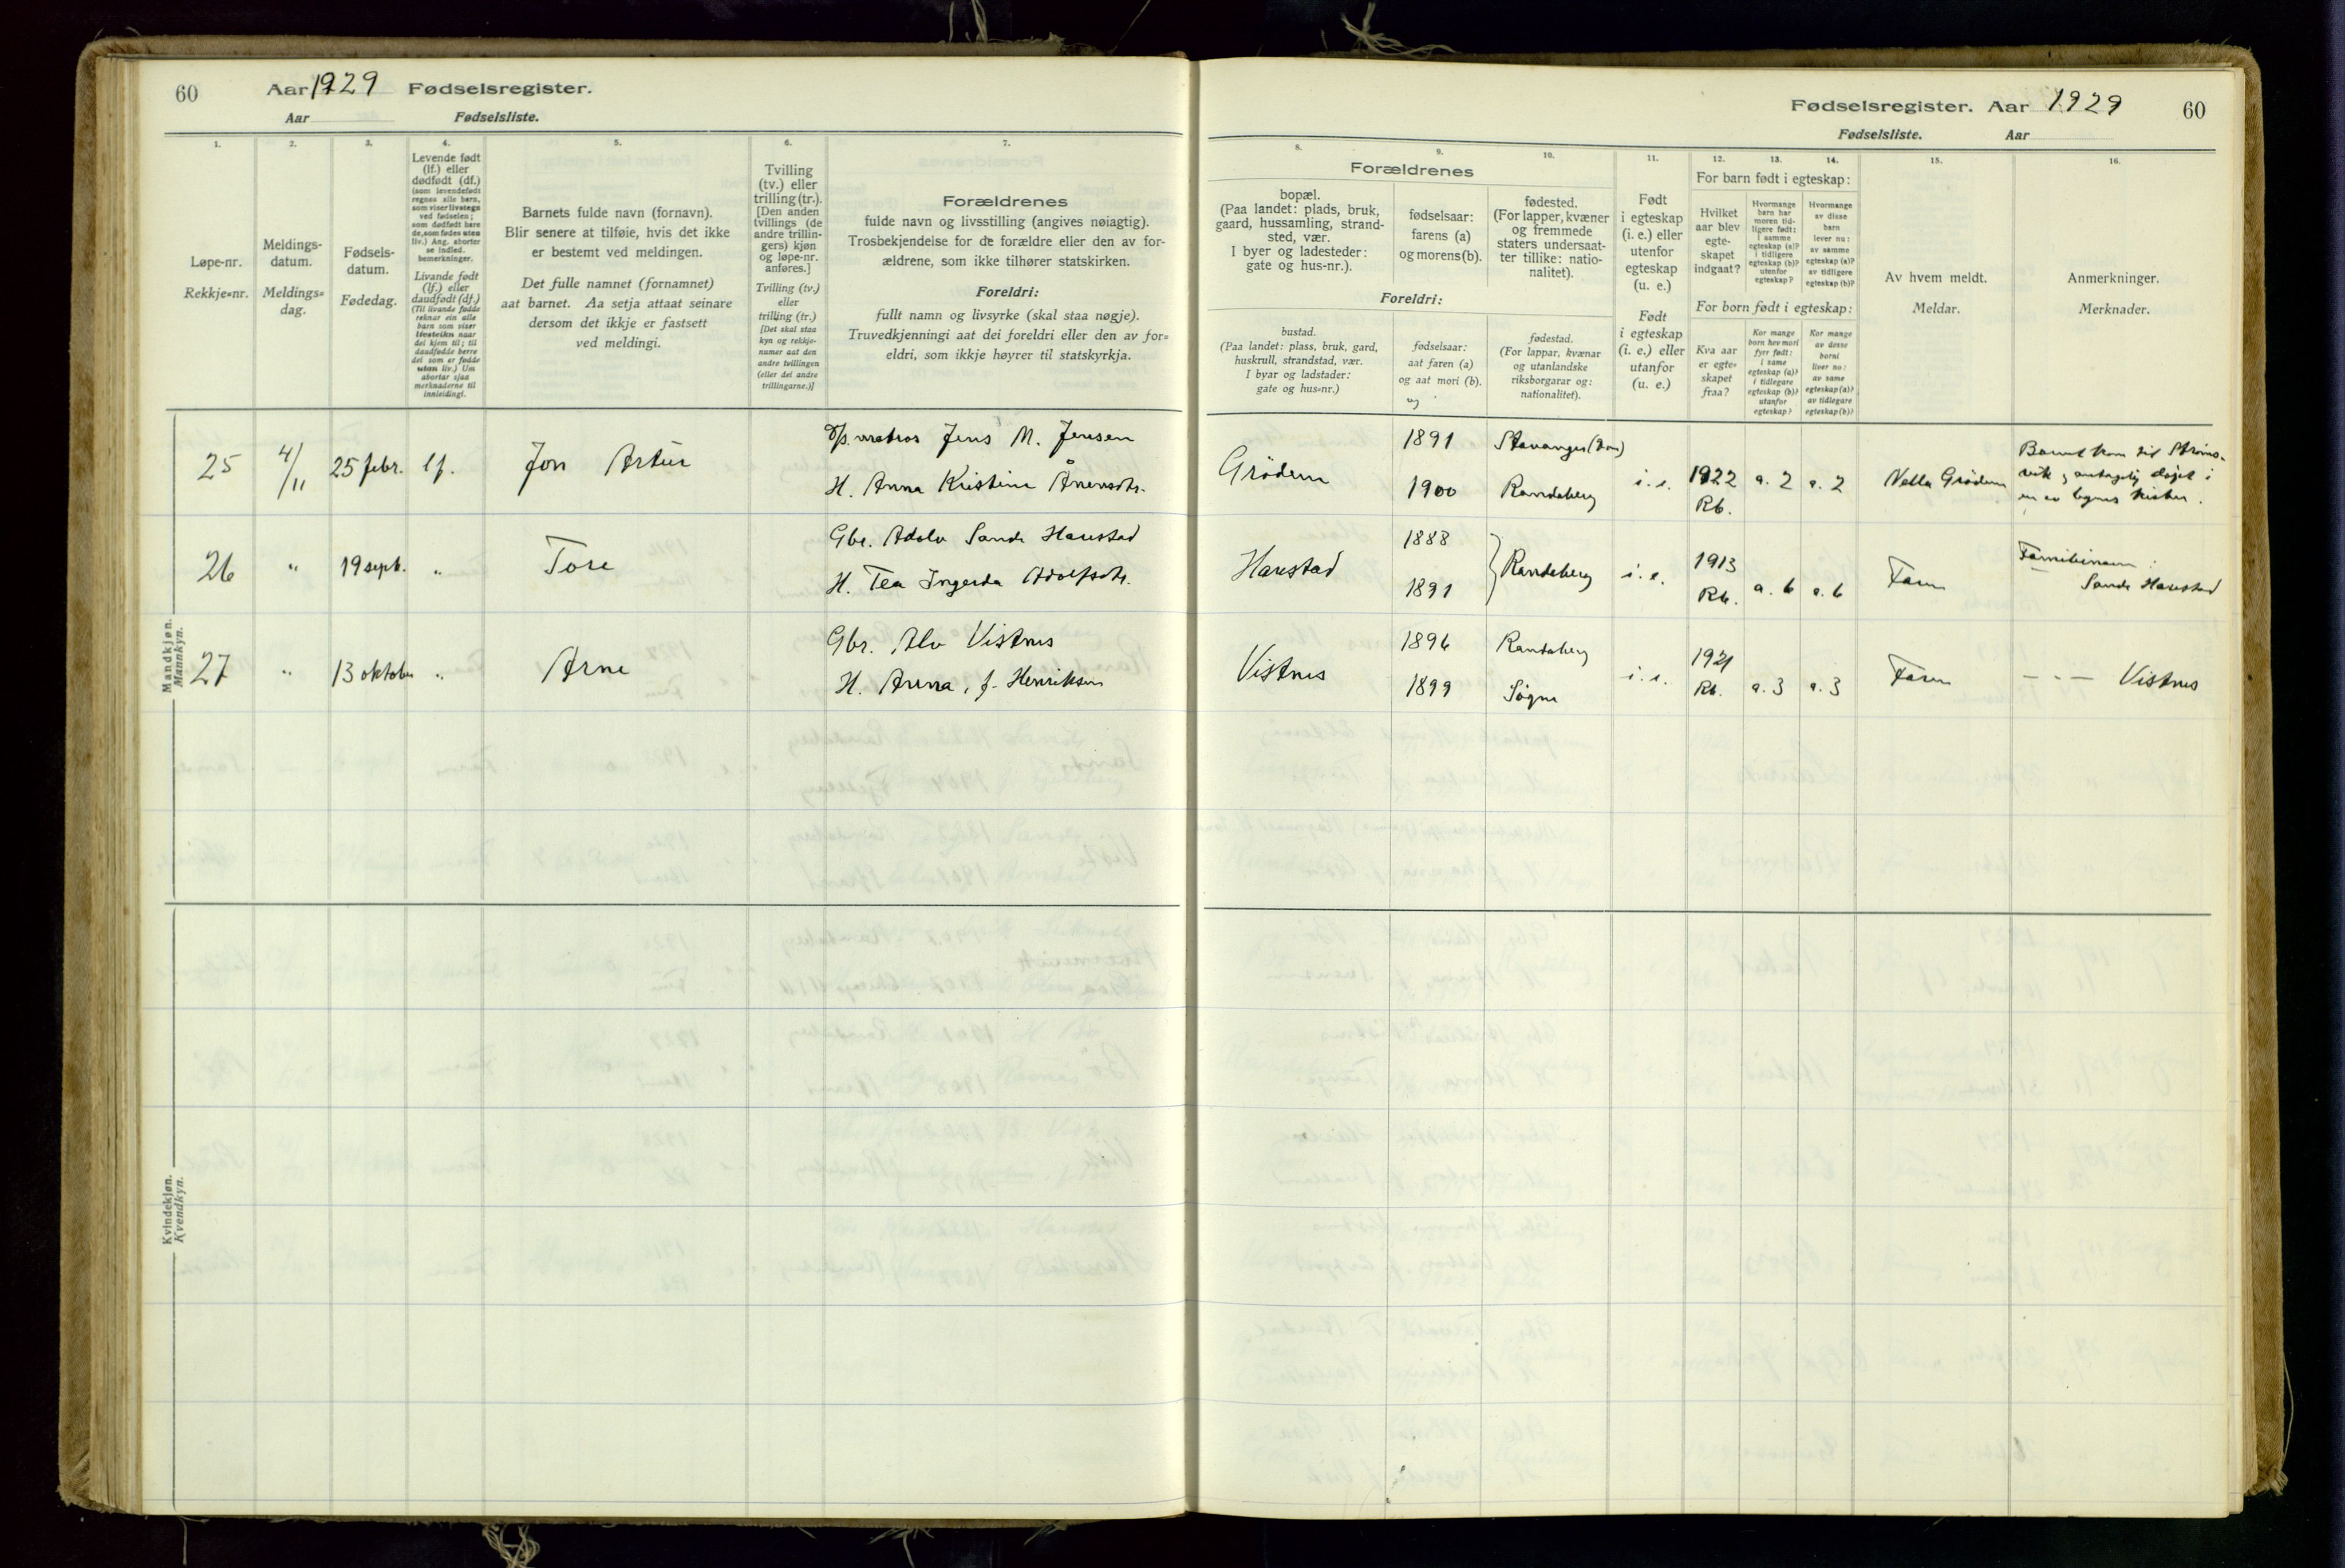 60
Aar 1929 Fødselsregister.
Aar Fødselsliste.
1.
2.
3.
4.
5.
6.
7.
Løpe-nr.
Rekkje=nr.
Meldings-
datum.
Meldings=
dag.
Fødsels-
datum.
Fødedag.
Levende født
(lf.) eller
dødfødt (df.)
(som levendefødt
regnes alle barn,
som viser livstegn
ved fødselen;
som dødfødt bare
de, som fødes uten
liv.) Ang. aborter
se indled.
bemerkninger.
Livande født
(lf.) eller
daudfødt (df.)
(Til livande fødde
reknar ein alle
barn som viser
livsteikn naar
dei kjem til; til
daudfødde berre
dei som er fødde
utan liv.) Um
abortar sjaa
merknaderne til
innleidingi.
Barnets fulde navn (fornavn).
Blir senere at tilføie, hvis det ikke
er bestemt ved meldingen.
Det fulle namnet (fornamnet)
aat barnet. Aa setja attaat seinare
dersom det ikkje er fastsett
ved meldingi.
Tvilling
(tv.) eller
trilling (tr.).
[Den anden
tvillings (de
andre trillin-
gers) kjøn
og løpe-nr.
anføres.]
Tvilling (tv.)
eller
trilling (tr.)
[Det skal staa
kyn og rekkje-
numer aat den
andre tvillingen
(eller dei andre
trillingarne.)]
Forældrenes
fulde navn og livsstilling (angives nøiagtig).
Trosbekjendelse for de forældre eller den av for-
ældrene, som ikke tilhører statskirken.
Foreldri:
fullt namn og livsyrke (skal staa nøgje).
Truvedkjenningi aat dei foreldri eller den av for=
eldri, som ikkje høyrer til statskyrkja.
Mandkjøn.
Mannkyn.
25 4/11 25 febr. lf. Jon Artur
matros Jens M. Jensen
H. Anna Kristine Ånensdtr.
26 " 19 sept. " Tore
Gbr. Adolv Sande Harestad
H. Tea Ingerda Adolfsdtr.
27 " 13 oktober " Arne
Gbr. Alv Vistnes
H. Anna, f. Henriksen
Kvindekjøn.
Kvendkyn.
Fødselsregister. Aar 1929 60
Fødselsliste. Aar
8.
9.
10.
11.
12.
13.
14.
15.
16.
Forældrenes
bopæl.
(Paa landet: plads, bruk,
gaard, hussamling, strand-
sted, vær.
I byer og ladesteder:
gate og hus-nr.).
fødselsaar:
farens (a)
og morens (b).
fødested.
(For lapper, kvæner
og fremmede
staters undersaat-
ter tillike: natio-
nalitet).
Foreldri:
bustad.
(Paa landet: plass, bruk, gard,
huskrull, strandstad, vær.
I byar og ladstader:
gate og hus=nr.)
fødselsaar:
aat faren (a)
og aat mori (b).
fødestad.
(For lappar, kvænar
og utanlandske
riksborgarar og:
nationalitet).
Født
i egteskap
(i. e.) eller
utenfor
egteskap
(u. e.)
Født
i egteskap
(i. e.) eller
utanfor
(u. e.)
For barn født i egteskap:
Hvilket
aar blev
egte-
skapet
indgaat?
Hvormange
barn har
moren tid-
ligere født:
i samme
egteskap (a)?
i tidligere
egteskap (b)?
utenfor
egteskap?
Hvormange
av disse
barn
lever nu:
av samme
egteskap (a)?
av tidligere
egteskap (b)?
For born født i egteskap:
Kva aar
er egte-
skapet
fraa?
Kor mange
born hev mori
fyrr født:
i same
egteskap (a)?
i tidlegare
egteskap (b)?
utanfor
egteskap?
Kor mange
av desse
borni
liver no:
av same
egteskap (a)?
av tidlegare
egteskap (b)?
Av hvem meldt.
Meldar.
Anmerkninger.
Merknader.
Grödem 1891 Stavanger (Dom)
1900 Randeberg i. e. 1922 Rb. a. 2 a. 2 Nella Grödem
Barnet kom til Ströms-
vik, antagelig døpt i
en av byens kirker.
Harestad 1888
1891 Randeberg i. e. 1913 Rb. a. 6 a. 6 Faren
Familienavn:
Sande Harestad
Vistnes 1896 Randeberg
1899 Sögne i. e. 1921 Rb. a. 3 a. 3 Faren
- - - Vistnes